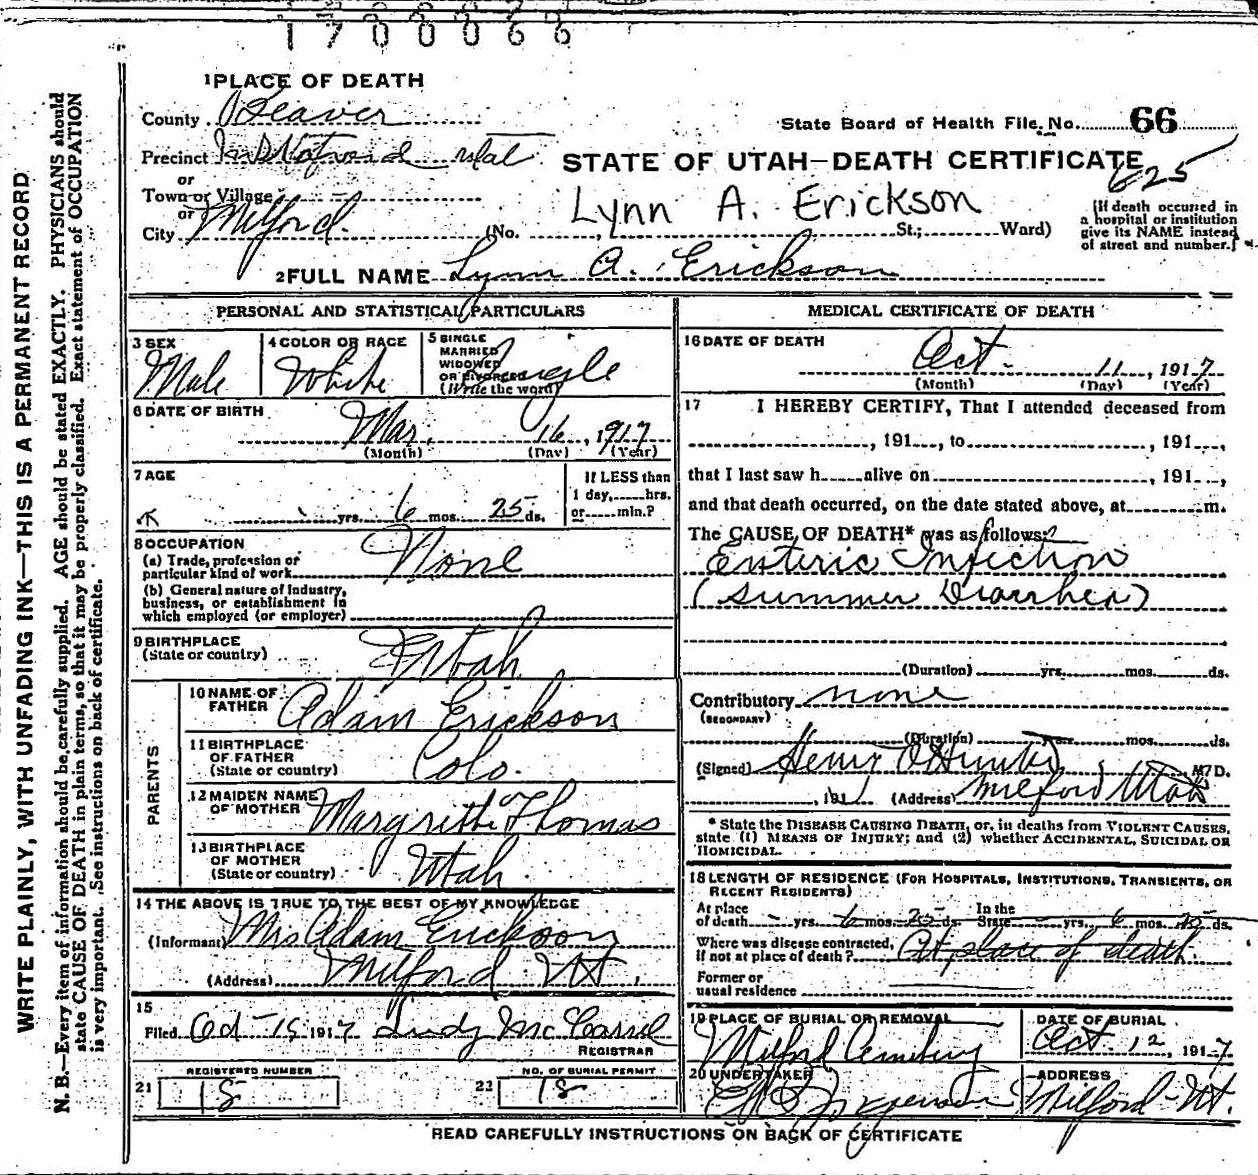 1 7 0 0 0 6 6
1 PLACE OF DEATH
County Beaver
State Board of Health File No. 66
Precinct
STATE OF UTAH—DEATH CERTIFICATE
625
or
Town or Village
or
City Milford. (No. , St.; Ward)
Lynn A. Erickson
(If death occurred in
a hospital or institution
give its NAME instead
of street and number.)
2 FULL NAME Lynn A. Erickson
PERSONAL AND STATISTICAL PARTICULARS
3 SEX Male
4 COLOR OR RACE White
5 SINGLE
MARRIED
WIDOWED
OR DIVORCED Single
(Write the word)
6 DATE OF BIRTH
Mar. 16, 1917
(Month) (Day) (Year)
7 AGE
yrs. 6 mos. 25 ds.
If LESS than
1 day, hrs.
or min.?
8 OCCUPATION
(a) Trade, profession or
particular kind of work None
(b) General nature of Industry,
business, or establishment in
which employed (or employer)
9 BIRTHPLACE
(State or country) Utah
PARENTS
10 NAME OF
FATHER Adam Erickson
11 BIRTHPLACE
OF FATHER
(State or country) Colo.
12 MAIDEN NAME
OF MOTHER Margrithe Thomas
13 BIRTHPLACE
OF MOTHER
(State or country) Utah.
14 THE ABOVE IS TRUE TO THE BEST OF MY KNOWLEDGE
(Informant) Mrs Adam Erickson
(Address) Milford Ut.
15
Filed Oct 15 1917 Judy McCarrel
REGISTRAR
21 REGISTERED NUMBER
18
22 NO. OF BURIAL PERMIT
18
MEDICAL CERTIFICATE OF DEATH
16 DATE OF DEATH
Oct. 11, 1917
(Month) (Day) (Year)
17 I HEREBY CERTIFY, That I attended deceased from
, 191 , to , 191 ,
that I last saw h alive on , 191 ,
and that death occurred, on the date stated above, at m.
The CAUSE OF DEATH* was as follows:
Enteric Infection
(Summer Diarrhea)
(Duration) yrs. mos. ds.
Contributory none
(SECONDARY)
(Duration) yrs. mos. ds.
(Signed) Henry , M.D.
, 191 (Address) Milford Utah
* State the DISEASE CAUSING DEATH, or, in deaths from VIOLENT CAUSES,
state (1) MEANS OF INJURY; and (2) whether ACCIDENTAL, SUICIDAL OR
HOMICIDAL.
18 LENGTH OF RESIDENCE (FOR HOSPITALS, INSTITUTIONS, TRANSIENTS, OR
RECENT RESIDENTS)
At place of death yrs. 6 mos. 25 ds. In the State yrs. 6 mos. 25 ds.
Where was disease contracted,
If not at place of death? At place of death.
Former or
usual residence
19 PLACE OF BURIAL OR REMOVAL
Milford Cemetery
DATE OF BURIAL
Oct. 12, 1917
20 UNDERTAKER
ADDRESS
Milford Ut.
READ CAREFULLY INSTRUCTIONS ON BACK OF CERTIFICATE
WRITE PLAINLY, WITH UNFADING INK—THIS IS A PERMANENT RECORD
N. B.—Every item of information should be carefully supplied. AGE should be stated EXACTLY. PHYSICIANS should
state CAUSE OF DEATH in plain terms, so that it may be properly classified. Exact statement of OCCUPATION
is very important. See instructions on back of certificate.